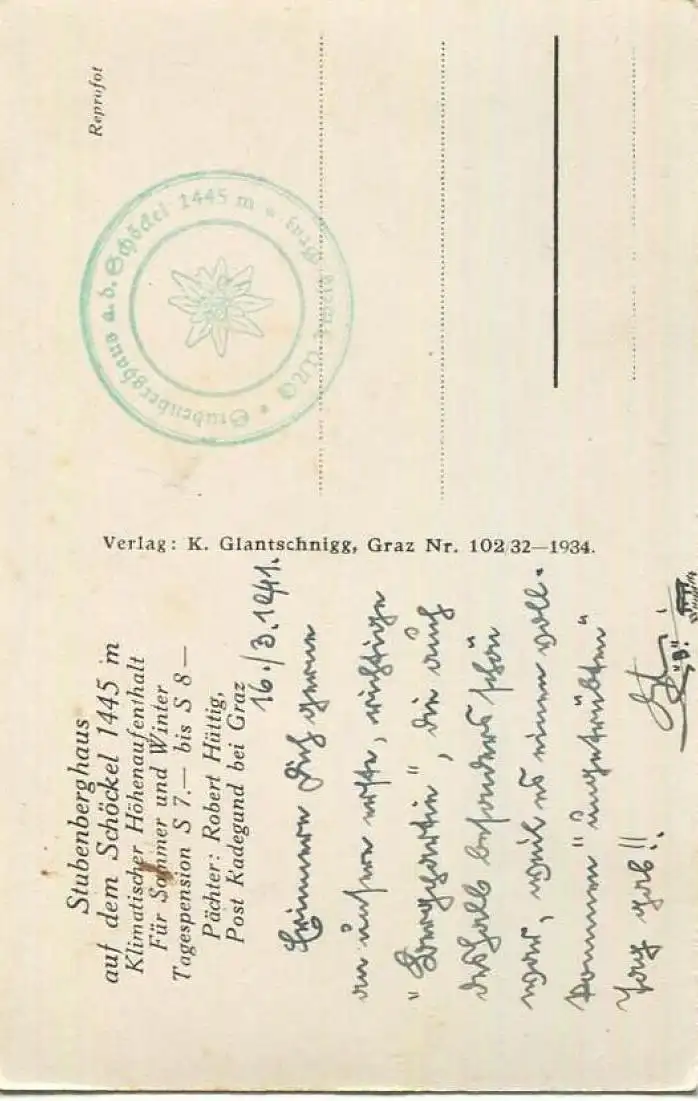 Stubenberghaus
auf dem Schöckel 1445 m
Klimatischer Höhenaufenthalt
Für Sommer und Winter
Tagespension S 7.— bis S 8—
Pächter: Robert Hüttig,
Post Radegund bei Graz
16./3.1941.
Erinnere Dich gerne
an unsere erste, richtige
"Bergpartie", die auch
deshalb besonders schön
war, weil es einen voll-
kommen "ungetrübten"
Tag gab!!
Verlag: K. Glantschnigg, Graz Nr. 102/32—1934.
Reprofot
Stubenberghaus a. d. Schöckel 1445 m